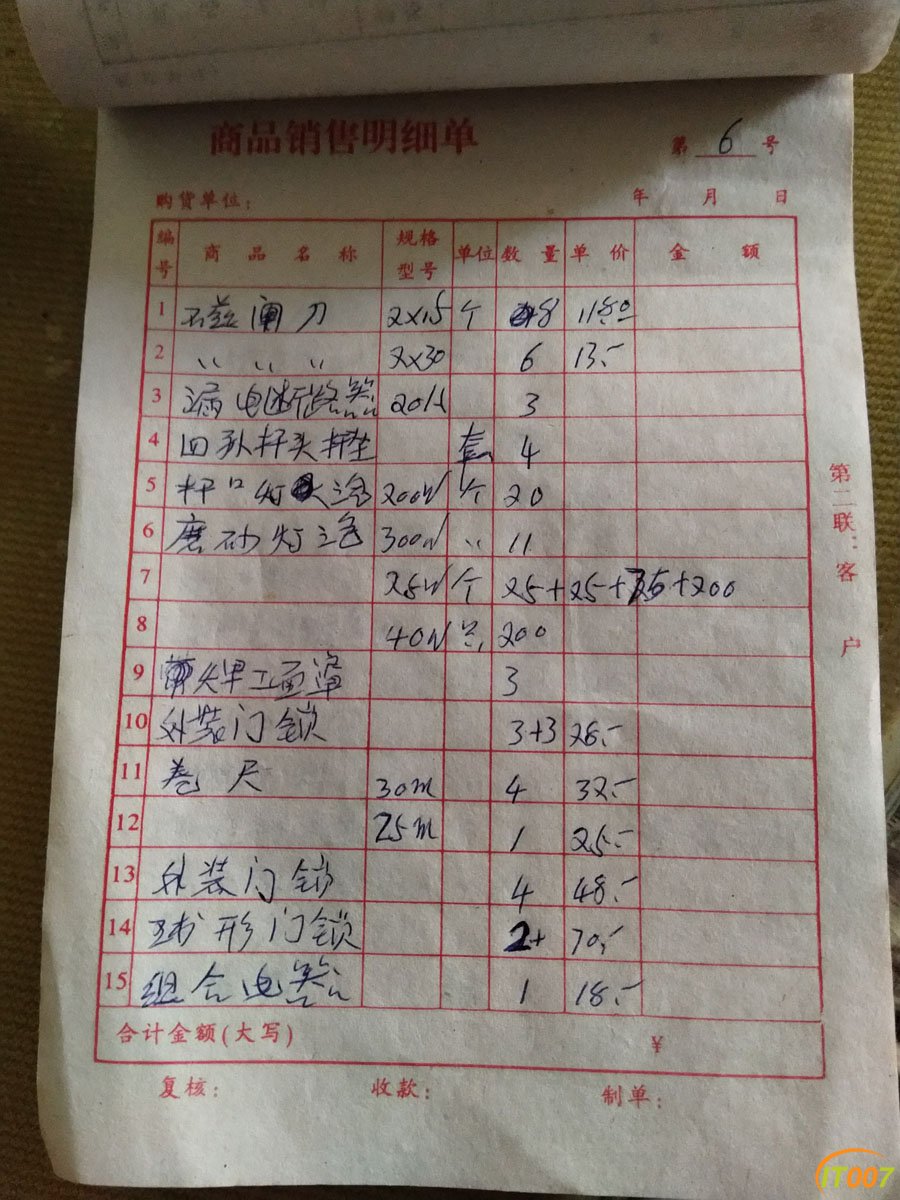 商品销售明细单
第 6 号
购货单位: 年 月 日
编号 商品名称 规格型号 单位 数量 单价 金额
1 磁闸刀 2×15 个 8
2 〃 〃 〃 2×30 6 13.-
3 漏电断路器 20A 3
4 四孔插头插座 套 4
5 插口灯泡 200W 个 20
6 磨砂灯泡 300W 〃 11
7 25W 个 25+25+75+200
8 40W 200
9 焊工面罩 3
10 外装门锁 3+3 26.-
11 卷尺 30m 4 32.-
12 25m 1 25.-
13 外装门锁 4 48.-
14 球形门锁 2+ 70.-
15 组合电器 1 18.-
合计金额(大写) ¥
复核: 收款: 制单:
第二联:客户
IT007